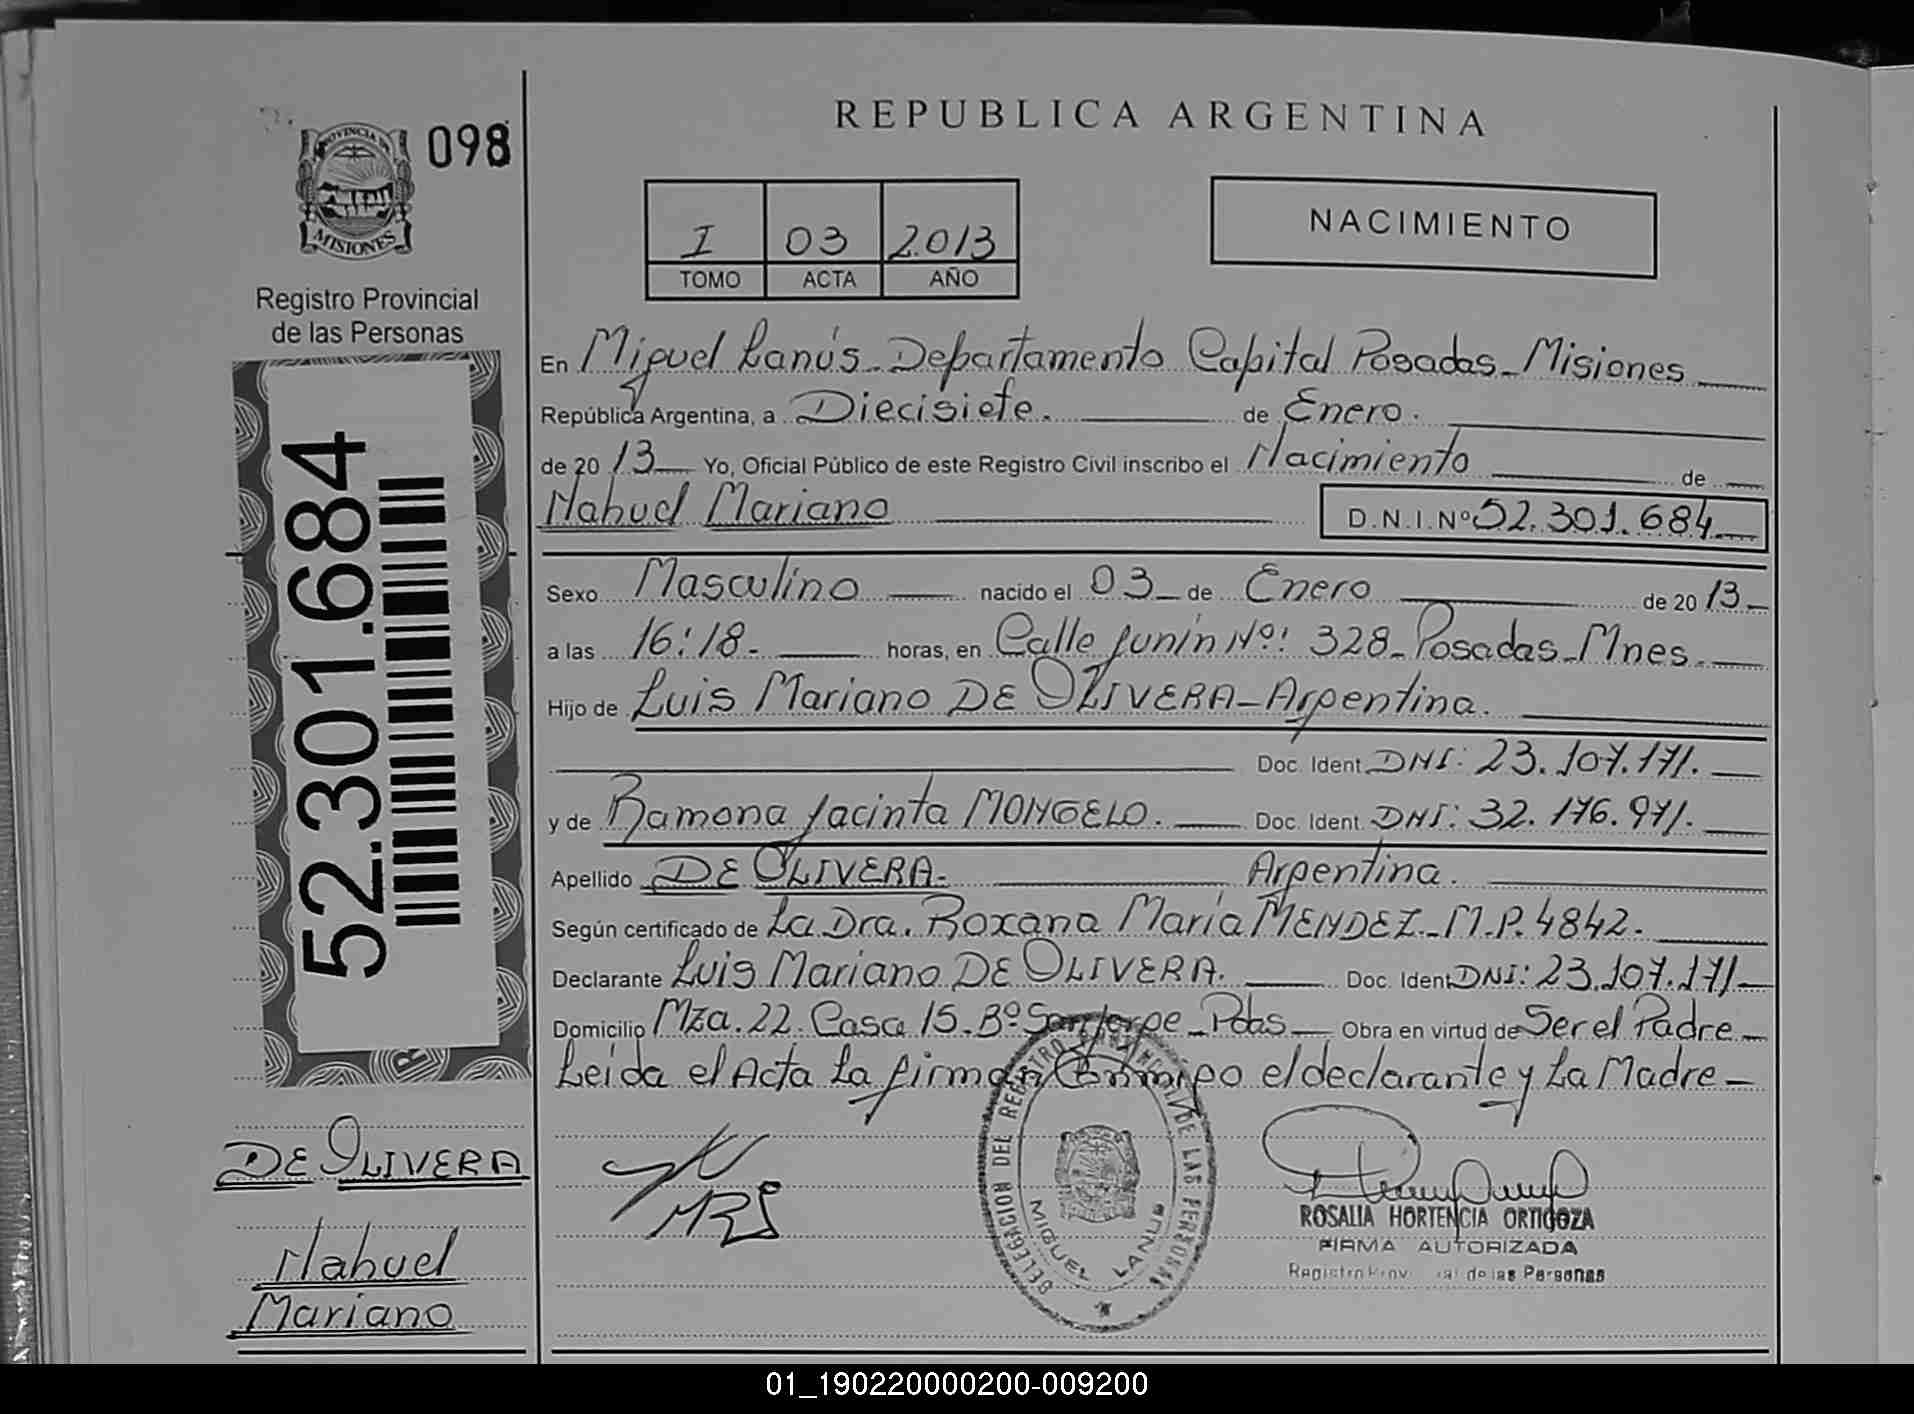 098
PROVINCIA DE
MISIONES
Registro Provincial
de las Personas
52.301.684
DE OLIVERA
Nahuel
Mariano
REPUBLICA ARGENTINA
I 03 2.013
TOMO ACTA AÑO
NACIMIENTO
En Miguel Lanús. Departamento Capital Posadas - Misiones
República Argentina, a Diecisiete. de Enero.
de 20 13 Yo, Oficial Público de este Registro Civil inscribo el Nacimiento de
Nahuel Mariano D.N.I.Nº 52.301.684
Sexo Masculino nacido el 03 de Enero de 20 13
a las 16:18. horas, en Calle Junín Nº: 328 - Posadas - Mnes.
Hijo de Luis Mariano DE OLIVERA - Argentina.
Doc. Ident. DNI: 23.107.171.
y de Ramona Jacinta MONGELO. Doc. Ident. DNI: 32.176.971.
Apellido DE OLIVERA. Argentina.
Según certificado de La Dra. Roxana María MENDEZ - M.P. 4842.
Declarante Luis Mariano DE OLIVERA. Doc. Ident. DNI: 23.107.171
Domicilio Mza. 22. Casa 15. Bº San Jorge - Pdas Obra en virtud de Ser el Padre
Leída el Acta La firman Conmigo el declarante y La Madre
DELEGACION DEL REGISTRO PROVINCIAL DE LAS PERSONAS
MIGUEL LANUS
ROSALIA HORTENCIA ORTIGOZA
FIRMA AUTORIZADA
Registro Provincial de las Personas
01_190220000200-009200